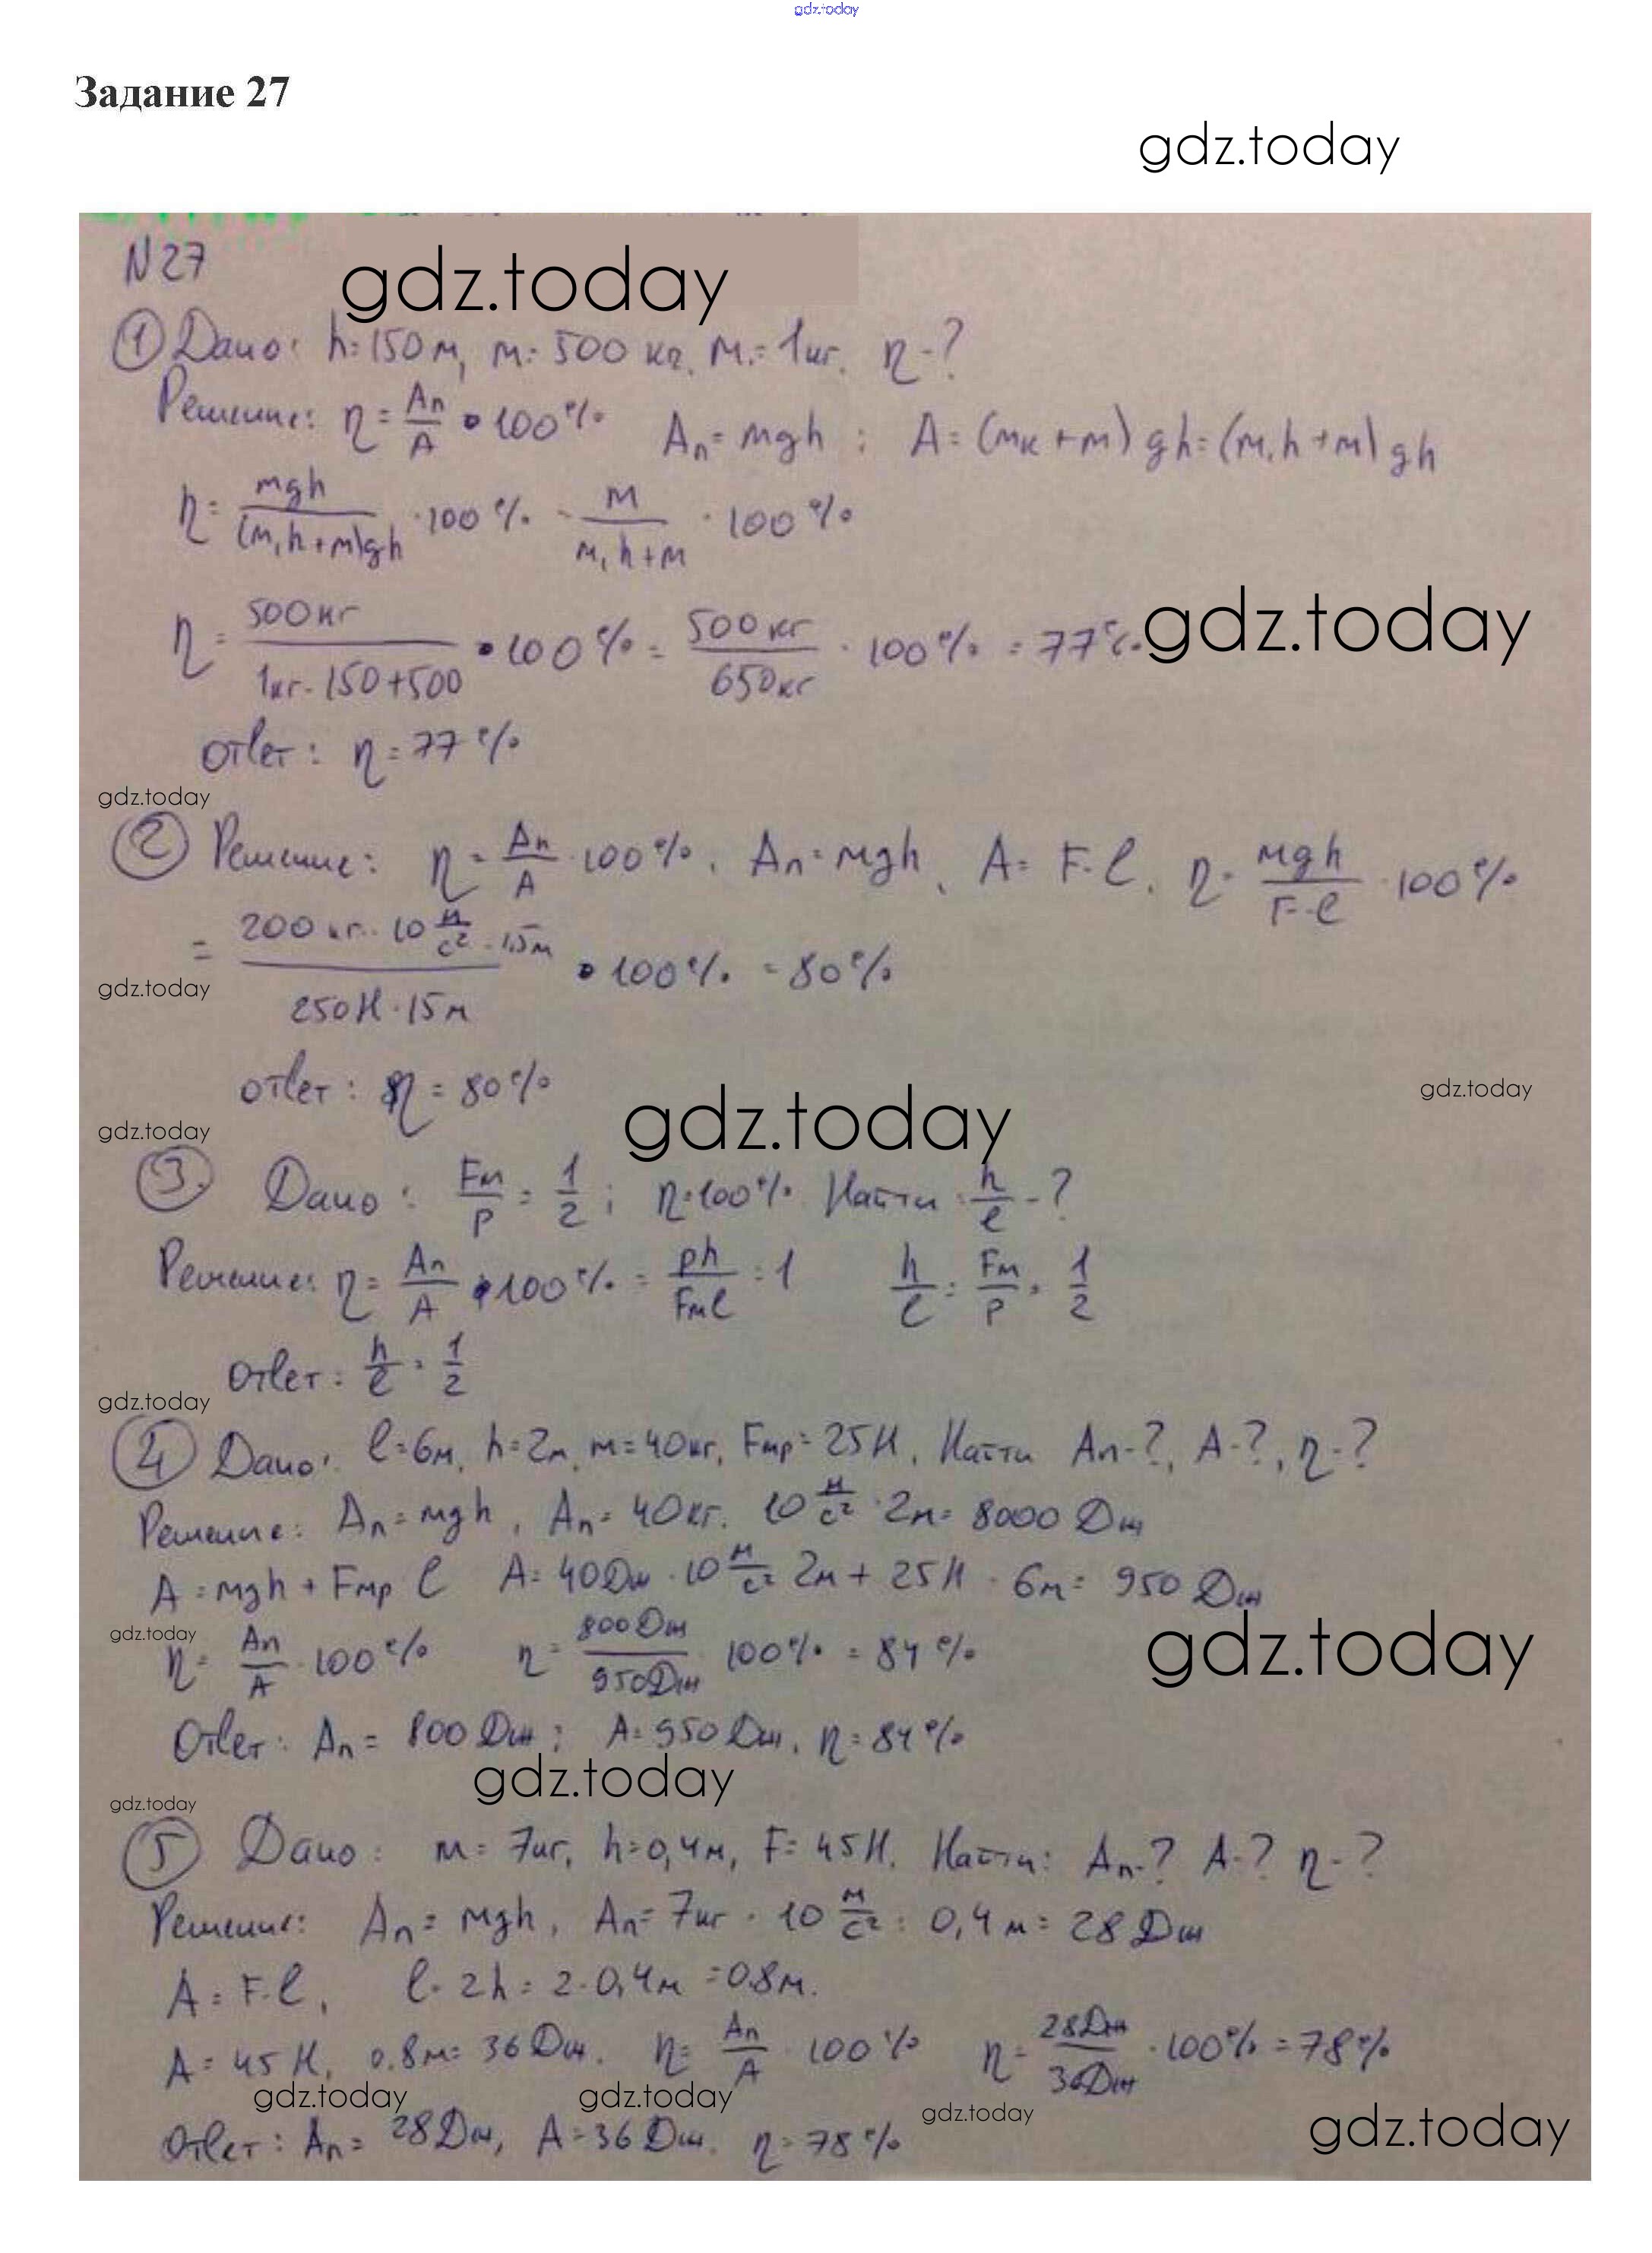 gdz.today
Задание 27
gdz.today
N27
gdz.today
① Дано: h=150м, m=500 кг. m₁=1кг. η-?
Решение: η = Aп/A • 100% Aп = mgh ; A = (mк+m) gh = (m₁h+m) gh
η = mgh/(m₁h+m)gh · 100% = m/m₁h+m · 100%
η = 500кг/1кг·150+500 • 100% = 500кг/650кг · 100% = 77%.
gdz.today
ответ: η = 77%
gdz.today
② Решение: η = Aп/A · 100%. Aп = mgh, A = F·l. η = mgh/F·l · 100%
= 200кг·10 м/с²·1,5м/250Н·15м • 100% = 80%
gdz.today
ответ: η = 80%
gdz.today
gdz.today
gdz.today
③. Дано: Fм/p = 1/2 ; η=100%. Найти: h/l - ?
Решение: η = Aп/A • 100% = ph/Fмl = 1 h/l = Fм/p = 1/2
ответ: h/l = 1/2
gdz.today
④ Дано: l=6м, h=2м, m=40кг, Fтр=25Н, Найти Aп-?, A-?, η-?
Решение: Aп = mgh, Aп = 40кг. 10 м/с² · 2м = 8000 Дж
A = mgh + Fтр l A = 40Дж · 10 м/с² 2м + 25Н · 6м = 950 Дж
gdz.today
η = Aп/A · 100% η = 800Дж/950Дж 100% = 84%
gdz.today
Ответ: Aп = 800 Дж; A = 950 Дж. η = 84%
gdz.today
gdz.today
⑤ Дано: m = 7кг, h=0,4м, F=45Н. Найти: Aп-? A-? η-?
Решение: Aп = mgh, Aп = 7кг · 10 м/с² · 0,4м = 28 Дж
A = F·l, l = 2h = 2·0,4м = 0.8м.
A = 45Н. 0.8м = 36 Дж. η = Aп/A · 100% η = 28Дж/36Дж · 100% = 78%
gdz.today gdz.today gdz.today gdz.today
Ответ: Aп = 28Дж, A = 36 Дж. η = 78%